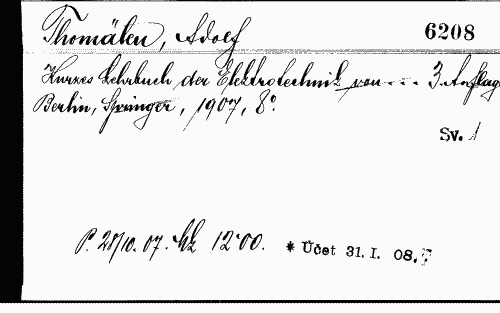 Thomälen, Adolf 6208
Kurzes Lehrbuch der Elektrotechnik von ... 3. Auflag
Berlin, Springer, 1907, 8°.
Sv. 1
P. 28/10. 07. 12·00. * Účet 31. I. 08.